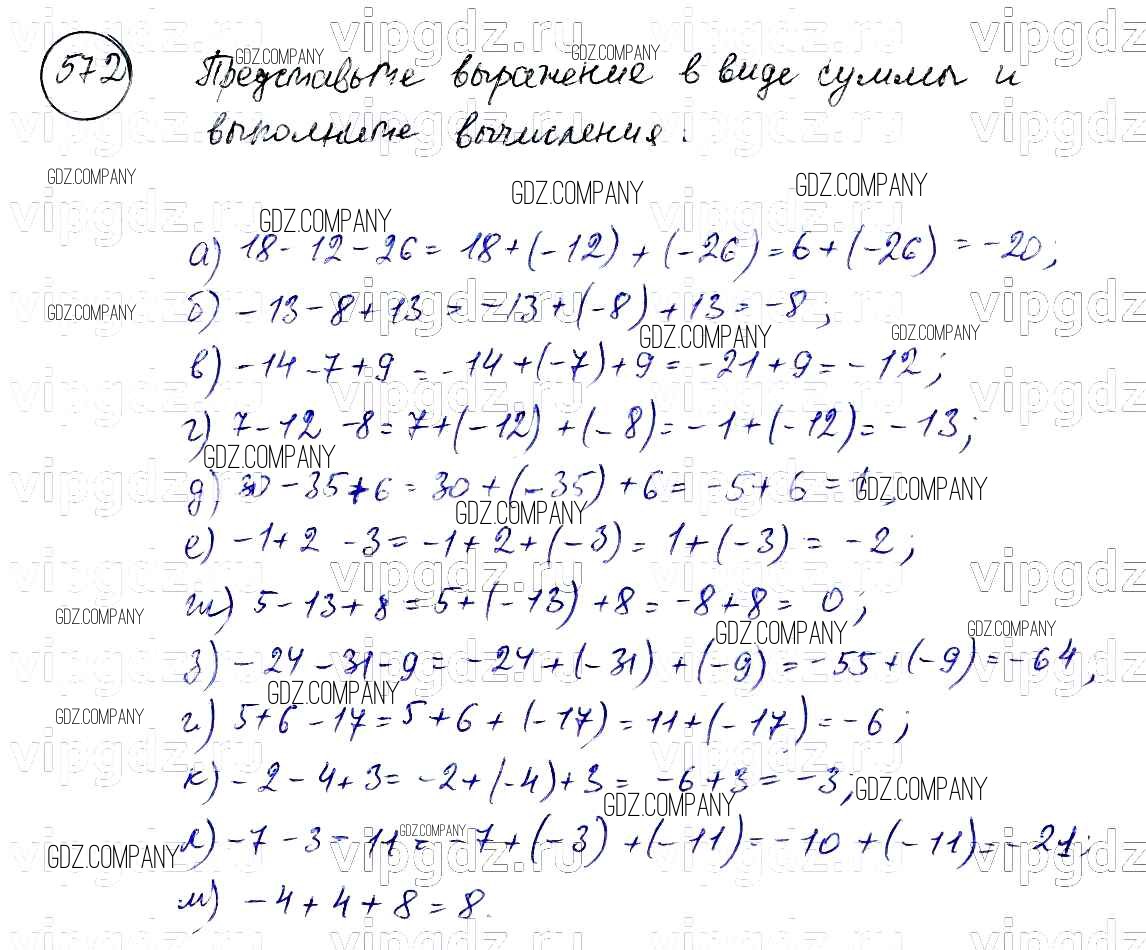 572 Представьте выражение в виде суммы и
выполните вычисления.
а) 18 - 12 - 26 = 18 + (-12) + (-26) = 6 + (-26) = -20;
б) -13 - 8 + 13 = -13 + (-8) + 13 = -8;
в) -14 - 7 + 9 = -14 + (-7) + 9 = -21 + 9 = -12;
г) 7 - 12 - 8 = 7 + (-12) + (-8) = -1 + (-12) = -13;
д) 30 - 35 + 6 = 30 + (-35) + 6 = -5 + 6 = 1;
е) -1 + 2 - 3 = -1 + 2 + (-3) = 1 + (-3) = -2;
ж) 5 - 13 + 8 = 5 + (-13) + 8 = -8 + 8 = 0;
з) -24 - 31 - 9 = -24 + (-31) + (-9) = -55 + (-9) = -64;
и) 5 + 6 - 17 = 5 + 6 + (-17) = 11 + (-17) = -6;
к) -2 - 4 + 3 = -2 + (-4) + 3 = -6 + 3 = -3;
л) -7 - 3 - 11 = -7 + (-3) + (-11) = -10 + (-11) = -21;
м) -4 + 4 + 8 = 8.
GDZ.COMPANY
vipgdz.ru